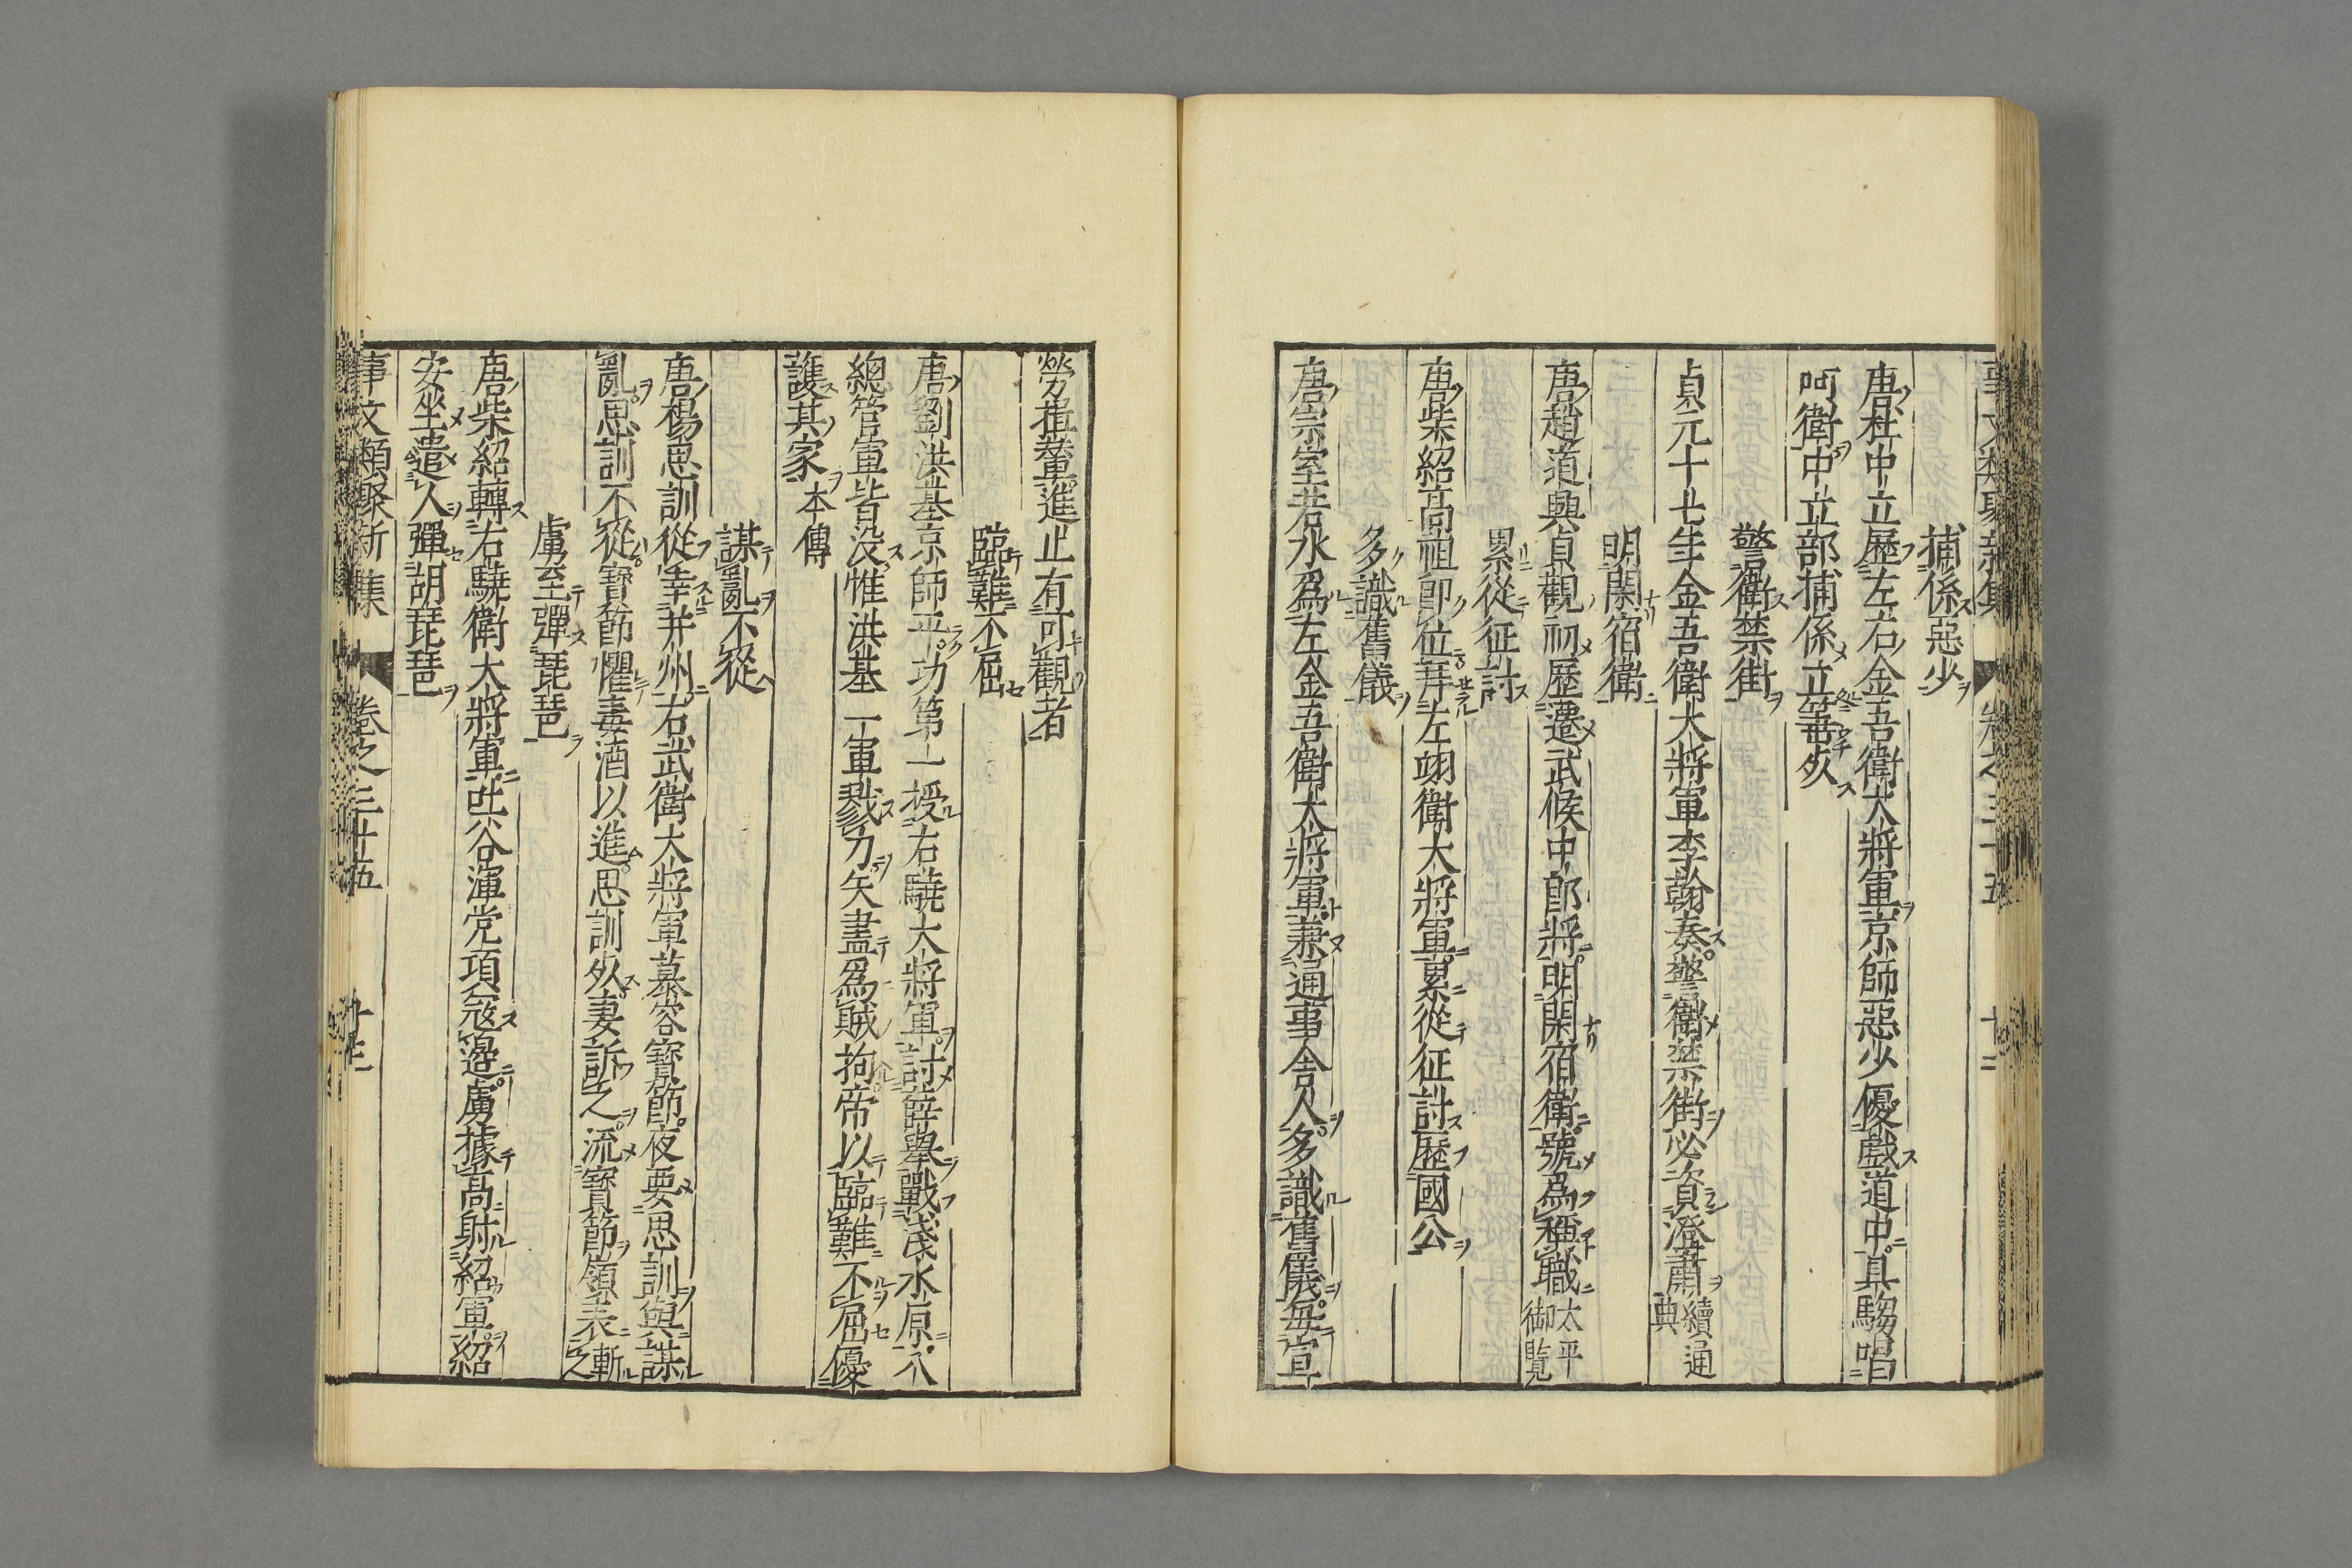 捕係惡少
唐杜中立歷左右金吾衛大將軍京師惡少優戲道中具騶唱
呵衛中立部捕係立箠死
警衛禁街
貞元十七年金吾衛大將軍李翰奏警衛禁街必資澄肅續通典
明閑宿衛
唐趙道興貞觀初歷遷武候中郎將明閑宿衛號為稱職太平御覽
累從征討
唐柴紹高祖即位拜左翊衛大將軍累從征討歷國公
多識舊儀
唐宗室若水為左金吾衛大將軍兼通事舍人多識舊儀每宣
勞揖讓進止有可觀者
臨難不屈
唐劉洪基京師平功第一授右驍大將軍討薛舉戰淺水原八
總管軍皆沒惟洪基一軍戮力矢盡為賊拘帝以臨難不屈優
護其家本傳
謀亂不從
唐楊思訓從幸并州右武衛大將軍慕容寶節夜要思訓與謀
亂思訓不從寶節懼毒酒以進思訓死妻訴之流寶節嶺表斬之
虜至彈琵琶
唐柴紹轉右驍衛大將軍吐谷渾党項寇邊虜據高射紹軍紹
安坐遣人彈胡琵琶
事文類聚新集 卷之三十五 十三